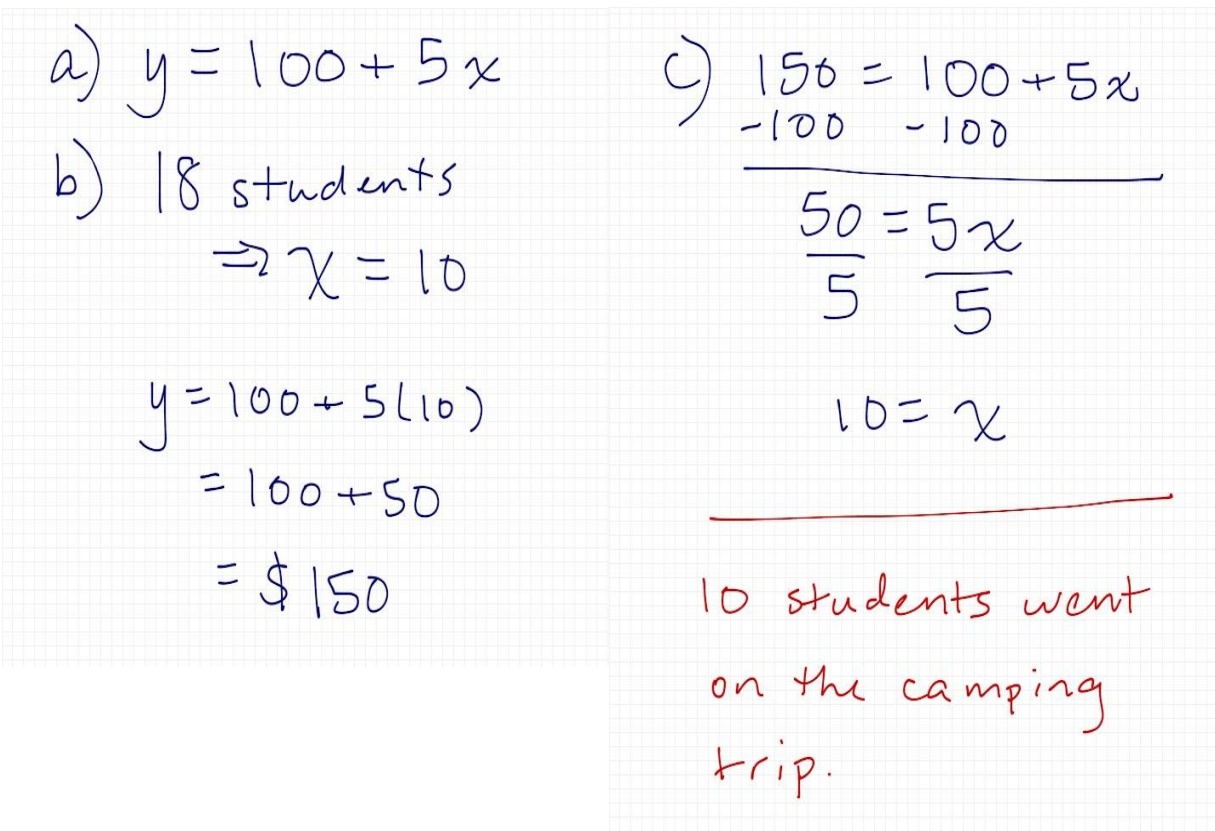 a) y = 100 + 5x
b) 18 students
⇒ x = 10
y = 100 + 5(10)
= 100 + 50
= $150
c) 150 = 100 + 5x
-100 -100
50 = 5x
5 5
10 = x
10 students went
on the camping
trip.